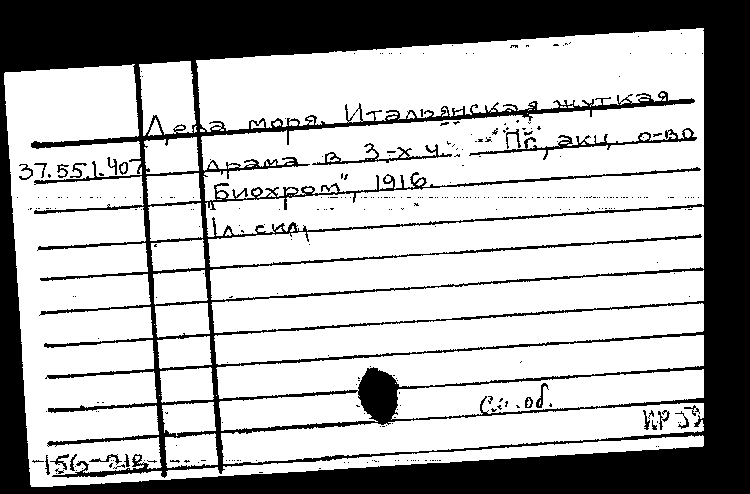 Дева моря. Итальянская жуткая
37.55.1.407. драма в 3-х ч. – Пг, акц. о-во
„Биохром", 1916.
1л. скл.
Сп. об.
КР 59
156-218